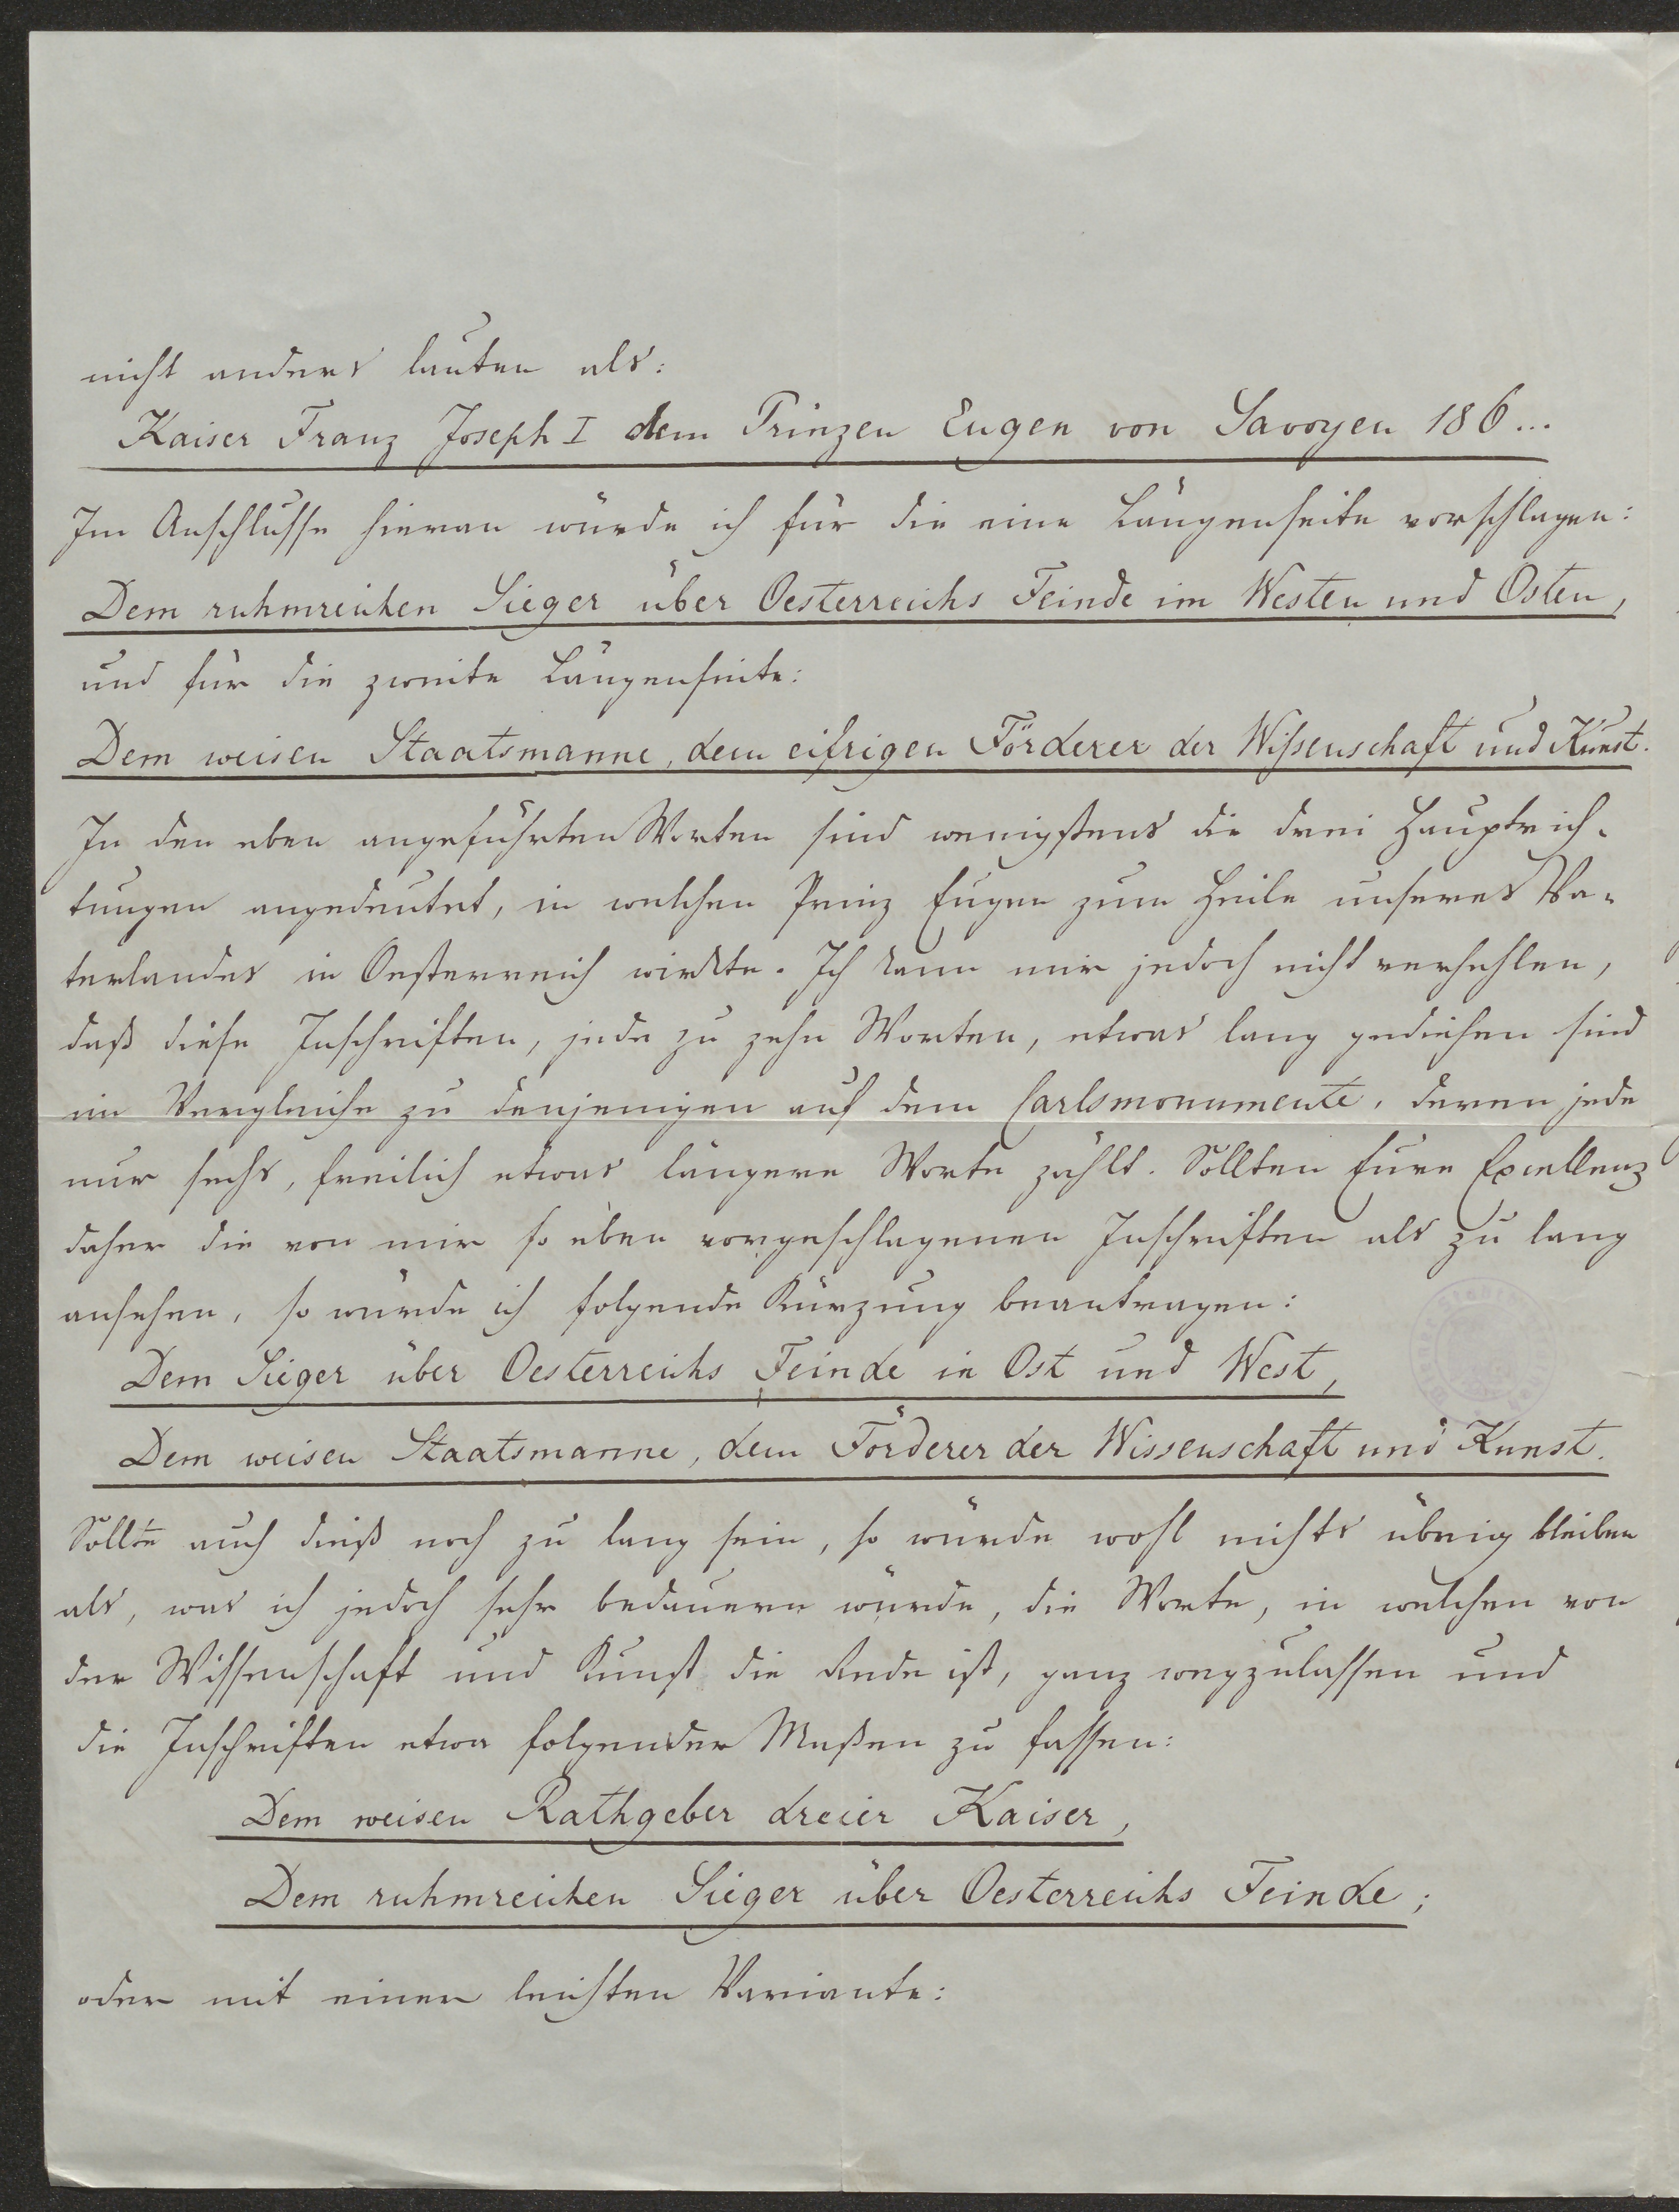 nicht anders lauten als:
Kaiser Franz Joseph I dem Prinzen Eugen von Savoyen 186...
Im Anschlusse hieran würde ich für die eine Längenseite vorschlagen:
Dem ruhmreichen Sieger über Oesterreichs Feinde im Westen und Osten,
und für die zweite Längenseite:
Dem weisen Staatsmanne, dem eifrigen Förderer der Wißenschaft und Kunst.
In den eben angeführten Worten sind wenigstens die drei Hauptrich-
tungen angedeutet, in welchen Prinz Eugen zum Heile unseres Va-
terlandes in Oesterreich wirkte. Ich kann mir jedoch nicht verhehlen,
daß diese Inschriften, jede zu zehn Worten, etwas lang gediehen sind
im Vergleiche zu denjenigen auf dem Carlsmonumente, deren jede
nur sechs, freilich etwas längere Worte zählt. Sollten Eure Excellenz
daher die von mir so eben vorgeschlagenen Inschriften als zu lang
ansehen, so würde ich folgende Kürzung beantragen:
Dem Sieger über Oesterreichs Feinde in Ost und West,
Dem weisen Staatsmanne, dem Förderer der Wissenschaft und Kunst.
Sollte auch dieß noch zu lang sein, so würde wohl nichts übrig bleiben
als, was ich jedoch sehr bedauern würde, die Worte, in welchen von
der Wissenschaft und Kunst die Rede ist, ganz wegzulassen und
die Inschriften etwa folgender Maßen zu fassen:
Dem weisen Rathgeber dreier Kaiser,
Dem ruhmreichen Sieger über Oesterreichs Feinde;
oder mit einer leichten Variante: